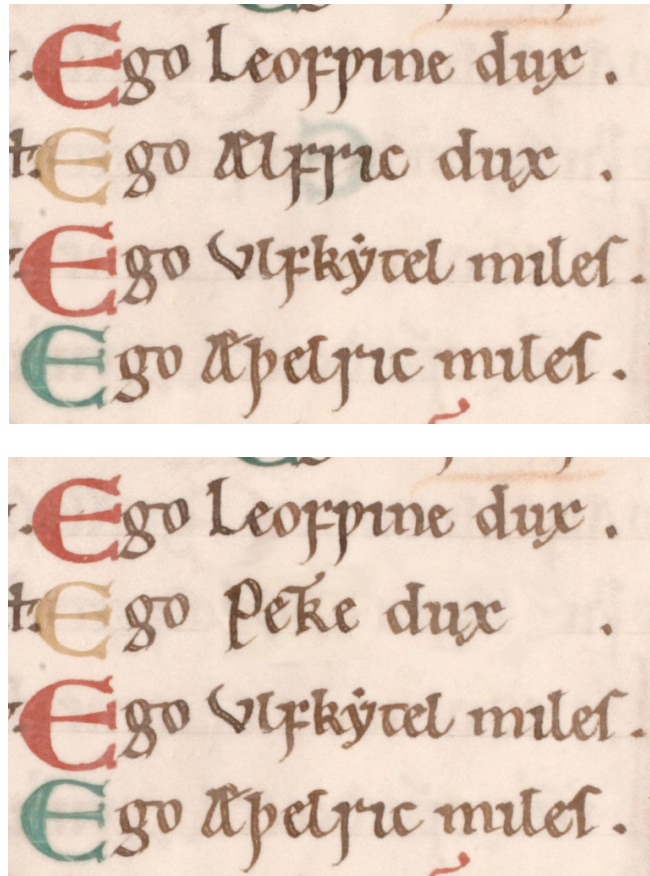 Ego Leofƿine dux .
Ego Ælfric dux .
Ego Vlfkẏtel mileſ .
Ego Æþelric mileſ .
Ego Leofƿine dux .
Ego Peke dux .
Ego Vlfkẏtel mileſ .
Ego Æþelric mileſ .